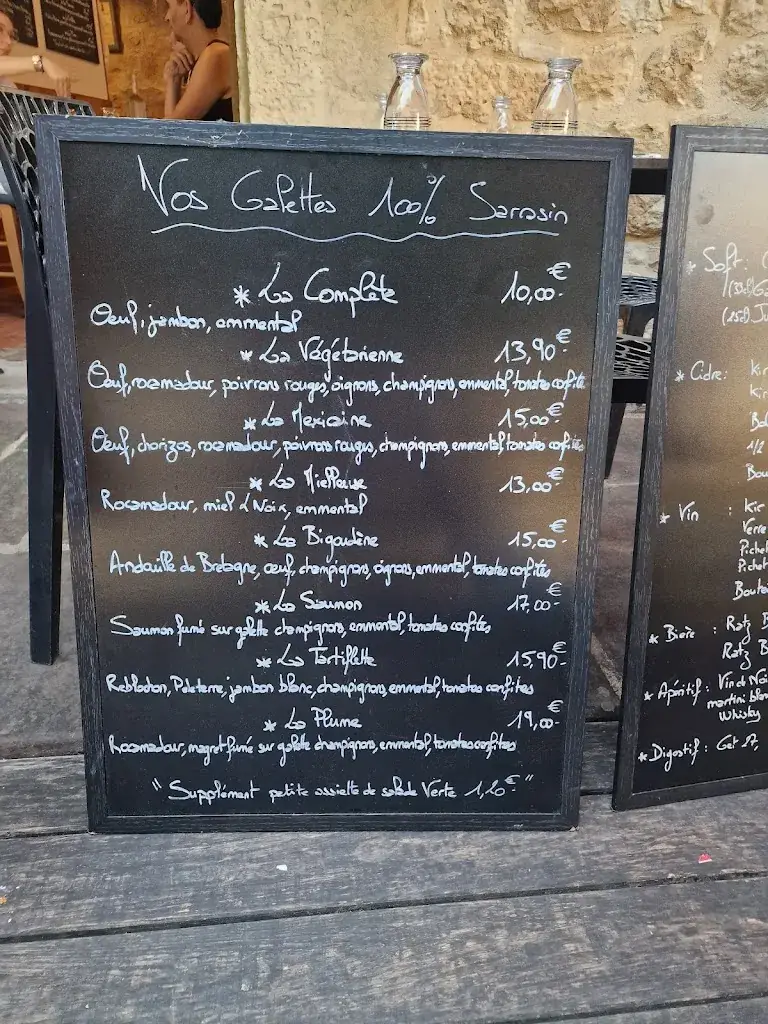 Nos Galettes 100% Sarrasin
* La Complète 10,00€
Oeuf, jambon, emmental
* La Végétarienne 13,90€
Oeuf, rocamadour, poivrons rouges, oignons, champignons, emmental, tomates confites
* La Mexicaine 15,00€
Oeuf, chorizos, rocamadour, poivrons rouges, champignons, emmental, tomates confites
* La Mielleuse 13,00€
Rocamadour, miel d Noix, emmental
* La Bigoudène 15,00€
Andouille de Bretagne, oeuf, champignons, oignons, emmental, tomates confites
* La Saumon 17,00€
Saumon fumé sur galette champignons, emmental, tomates confites
* La Tartiflette 15,90€
Reblochon, jambon blanc, champignons, emmental, tomates confites
* La Plume 19,00€
Rocamadour, magret fumé sur galette champignons, emmental, tomates confites
"Supplément petite assiette de salade Verte 1,20€"
* Soft :
* Cidre : Kir
Kir
1/2
* Vin : Kir
Verre
Pichet
Pichet
* Bière : Ratz B
Ratz B
* Apéritif : Vin de Noi
martini blan
Whisky
* Digestif : Get 27,